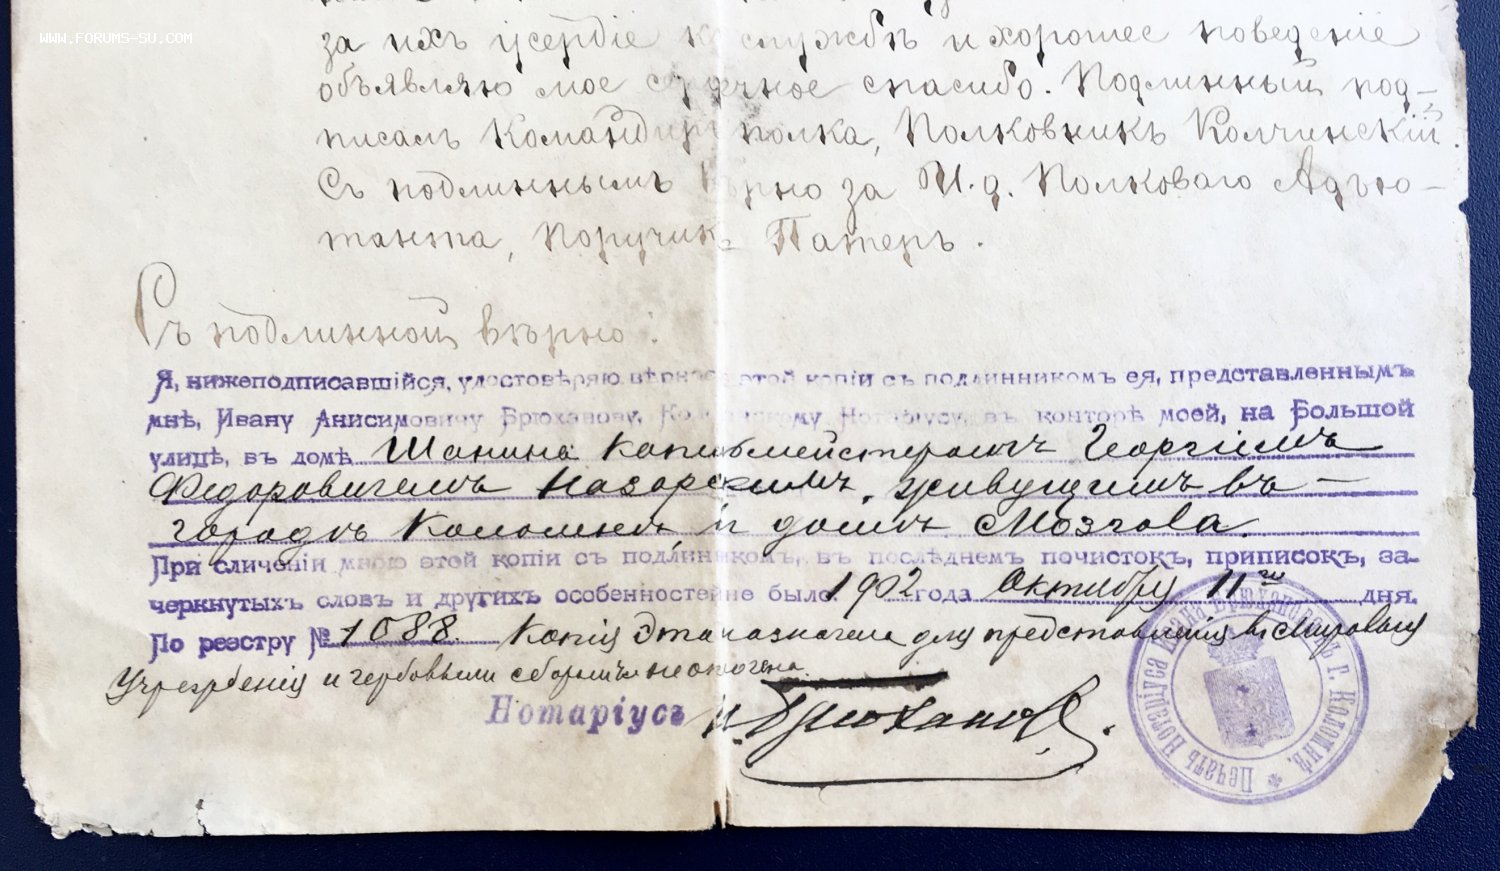 WWW.FORUMS-SU.COM
за ихъ усердіе къ службѣ и хорошее поведеніе
объявляю мое сердечное спасибо. Подлинный под-
писалъ Командиръ полка, Полковникъ Колчинскій.
Съ подлиннымъ вѣрно за И. д. Полковаго Адъю-
танта, Поручикъ Патеръ.
Съ подлинной вѣрно:
Я, нижеподписавшійся, удостовѣряю вѣрность этой копіи съ подлинникомъ ея, представленнымъ
мнѣ, Ивану Анисимовичу Брюханову, Коломенскому Нотаріусу, въ конторѣ моей, на Большой
улицѣ, въ домѣ Шанина Капельмейстеромъ Георгіемъ
Федоровичемъ Назарскимъ, живущимъ въ
городѣ Коломнѣ, въ домѣ Мозгова.
При сличеніи мною этой копіи съ подлинникомъ, въ послѣднемъ почистокъ, приписокъ, за-
черкнутыхъ словъ и другихъ особенностей не было. 1902 года Октября 11го дня.
По реэстру № 1688. Копія эта назначена для представленія въ Мировыя
Учрежденія и гербовымъ сборомъ не оплочена.
Нотаріусъ И. Брюхановъ.
Печать Нотаріуса Ивана Брюханова въ г. Коломнѣ. *